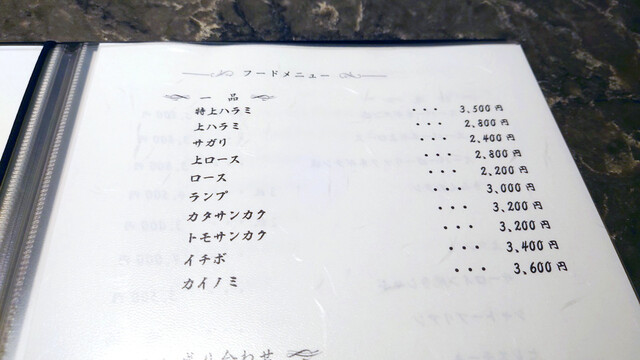 フードメニュー
一品
特上ハラミ ・・・ 3,500円
上ハラミ ・・・ 2,800円
サガリ ・・・ 2,400円
上ロース ・・・ 2,800円
ロース ・・・ 2,200円
ランプ ・・・ 3,000円
カタサンカク ・・・ 3,200円
トモサンカク ・・・ 3,200円
イチボ ・・・ 3,400円
カイノミ ・・・ 3,600円
盛り合わせ